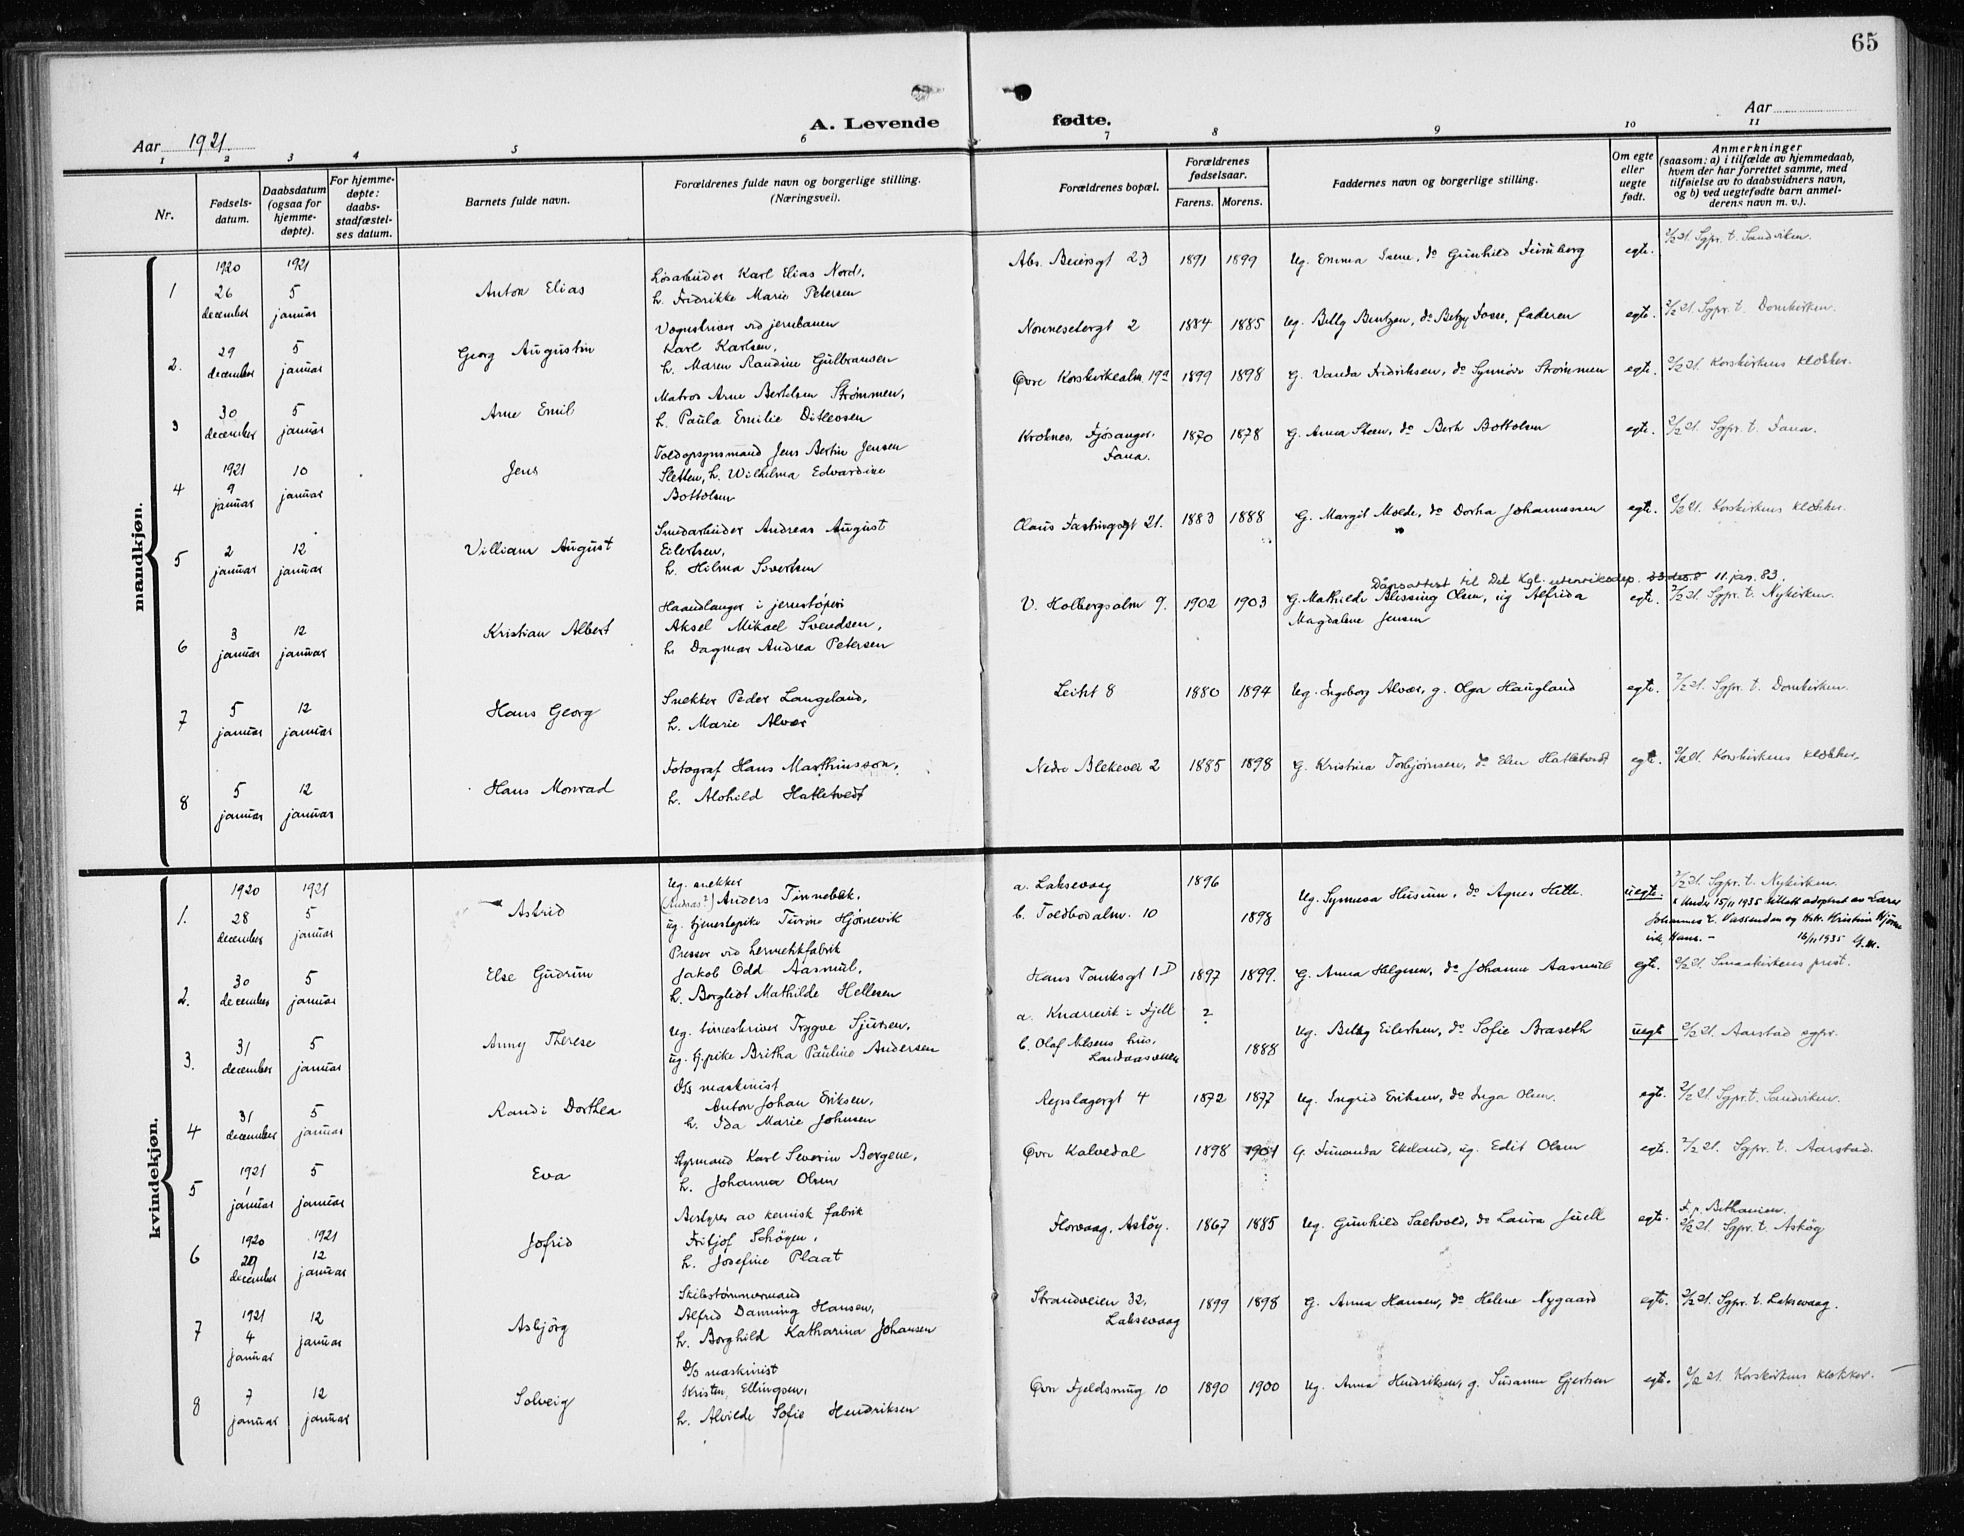 65
Aar 1921.
A. Levende fødte.
Aar
1 2 3 4 5 6 7 8 9 10 11
Nr.
Fødsels-
datum.
Daabsdatum
(ogsaa for
hjemme-
døpte).
For hjemme-
døpte:
daabs-
stadfæstel-
ses datum.
Barnets fulde navn.
Forældrenes fulde navn og borgerlige stilling.
(Næringsvei).
Forældrenes bopæl.
Forældrenes
fødselsaar.
Farens. Morens.
Faddernes navn og borgerlige stilling.
Om egte
eller
uegte
født.
Anmerkninger
(saasom: a) i tilfælde av hjemmedaab,
hvem der har forrettet samme, med
tilføielse av to daabsvidners navn,
og b) ved uegtefødte barn anmel-
derens navn m. v.).
mandkjøn.
1
1920
26
december
1921
5
januar
Anton Elias
Løsarbeider Karl Elias Nord,
h. Fredrikke Marie Petersen
Abs. Beiersgt 23
1891 1899
Ug. Emma Isene, do Gunhild Furuberg
egte.
2/2 21. Sgpr. t. Sandviken.
2.
29
december
5
januar
Georg Augustin
Vognskriver ved jernbanen
Karl Karlsen,
h. Maren Randine Gulbransen
Nonnesetergt 2
1884 1885
Ug. Betty Bentzen, do Betzy Fosse, faderen
egte.
2/2 21. Sgpr. t. Domkirken.
3
30
december
5
januar
Arne Emil
Matros Arne Bertelsen Strømmen,
h. Paula Emilie Ditlevsen
Øvre Korskirkealm. 19a
1899 1898
G. Vanda Fredriksen, do Synnøve Strømmen
egte.
2/2 21. Korskirkens klokker.
4
1921
9
januar
10
januar
Jens
Toldopsynsmand Jens Bertin Jensen
Sletten, h. Wilhelma Edvardine
Bottolsen
Kroknes, Fjøsanger,
Fana.
1870 1878
G. Anna Steen, do Berh Bottolsen
egte.
2/2 21. Sgpr. t. Fana.
5
2
januar
12
januar
Villiam August
Smedarbeider Andreas August
Eilertsen,
h. Hilma Sivertsen
Claus Fastingsgt 21.
1883 1888
G. Margit Molde, do Dortha Johannessen
egte.
2/2 21. Korskirkens klokker.
6
3
januar
12
januar
Kristian Albert
Haandlanger i jernstøperi
Aksel Mikael Svendsen,
h. Dagmar Andrea Petersen
V. Holbergsalm 9.
1902 1903
Dåpsattest til Det Kgl. utenriksdep. 11. jan. 83.
G. Mathilde Blessing Olsen, ug Alfrida
Magdalene Jensen
egte.
2/2 21. Sgpr. t. Nykirken.
7
5
januar
12
januar
Hans Georg
Snekker Peder Langeland,
h. Marie Alvær
Leitet 8
1880 1894
Ug. Ingeborg Alvær, g. Olga Haugland
egte.
2/2 21. Sgpr. t. Domkirken.
8
5
januar
12
januar
Hans Monrad
Fotograf Hans Marthinsson,
h. Alvhild Hatletvedt
Nedre Blekevei 2
1885 1898
G. Kristina Torbjørnsen, do Elen Hatletvedt
egte.
2/2 21. Korskirkens klokker.
kvindekjøn.
1.
1920
28
december
1921
5
januar
Astrid
Ug. snekker
(Andreas?) Anders Tinnebek,
ug. tjenestepike Turine Hjørnevik
a. Laksevaag
b. Toldbodalm. 10
1896
1898
Ug. Synneva Husum, do Agnes Hette.
uegte.
2/2 21. Sgpr. t. Nykirken.
Under 15/11 1935 tillatt adoptert av Lærer
Johannes L. Vassenden og Hstr. Kristine Hjørne
vik, Hans. - 16/11 1935
2.
30
december
5
januar
Else Gudrun
Presser ved hermetikfabrik
Jakob Odd Aasmul,
h. Borghild Mathilde Hellesen
Hans Tanksgt 1D
1897 1899.
G. Anna Helgesen, do Johanne Aasmul
egte.
2/2 21. Smaakirkens prest.
3.
31
december
5
januar
Anny Therese
Ug. timeskriver Trygve Sjursen,
ug. tj.pike Britha Pauline Andersen
a. Knarrevik i Fjell
b. Olaf Nesens hus,
Landaasveien
?
1888
Ug. Betzy Eilertsen, do Sofie Braseth
uegte
2/2 21. Aarstad sgpr.
4
31
december
5
januar
Randi Dorthea
D/s maskinist
Anton Johan Eriksen,
h. Ida Marie Johnsen
Repslagergt 4
1872 1877
Ug. Ingrid Eriksen, do Inga Olsen.
egte.
2/2 21. Sgpr. t. Sandviken.
5
1921
1
januar
5
januar
Eva
Styrmand Karl Severin Bergene,
h. Johanna Olsen
Øvre Kalvedal
1898 1901
G. Fernanda Ekeland, ug. Edit Olsen
egte.
2/2 21. Sgpr. t. Aarstad.
6
1920
29
december
1921
12
januar
Jofrid
Bestyrer av kemisk fabrik
Fritjof Schøyen,
h. Josefine Plaat
Florvaag, Askøy.
1867 1885
Ug. Gunhild Sætvold, do Laura Juell
egte.
F. p. Bethanien.
2/2 21. Sgpr. t. Askøy
7
1921
4
januar
12
januar
Asbjørg
Skibstømmermand
Alfred Danning Hansen,
h. Borghild Katharina Johansen
Strandveien 32,
Laksevaag
1899 1898
G. Anna Hansen, do Helene Nygaard
egte.
2/2 21. Sgpr. t. Laksevaag.
8
7
januar
12
januar
Solveig
D/s maskinist
Kristen Ellingsen,
h. Alvilde Sofie Hendriksen
Øvre Fjeldsmug 10
1890 1900
Ug. Anna Hendriksen, g. Susanne Gjertsen
egte.
2/2 21. Korskirkens klokker.